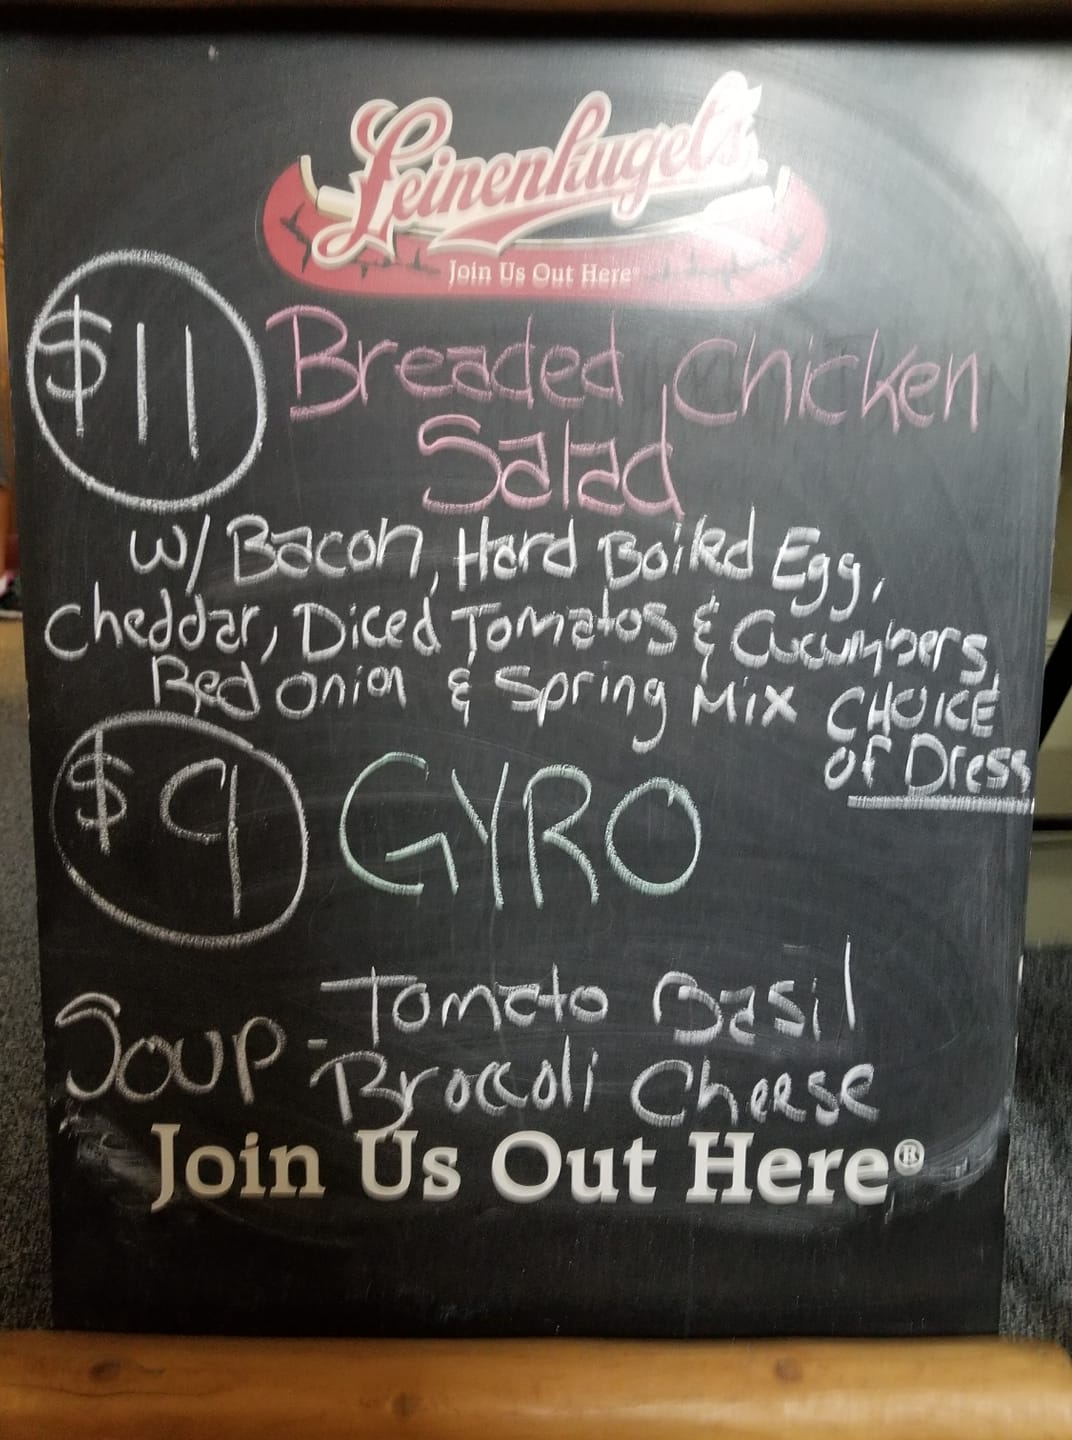 Leinenkugel's
Join Us Out Here®
$11 Breaded Chicken
Salad
w/ Bacon, Hard Boiled Egg,
Cheddar, Diced Tomatos & Cucumbers,
Red Onion & Spring Mix CHOICE
of Dress
$9 GYRO
Soup - Tomato Basil
Broccoli Cheese
Join Us Out Here®